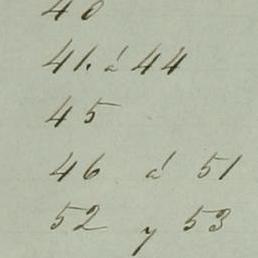 40
41. á 44
45
46 á 51
52 y 53